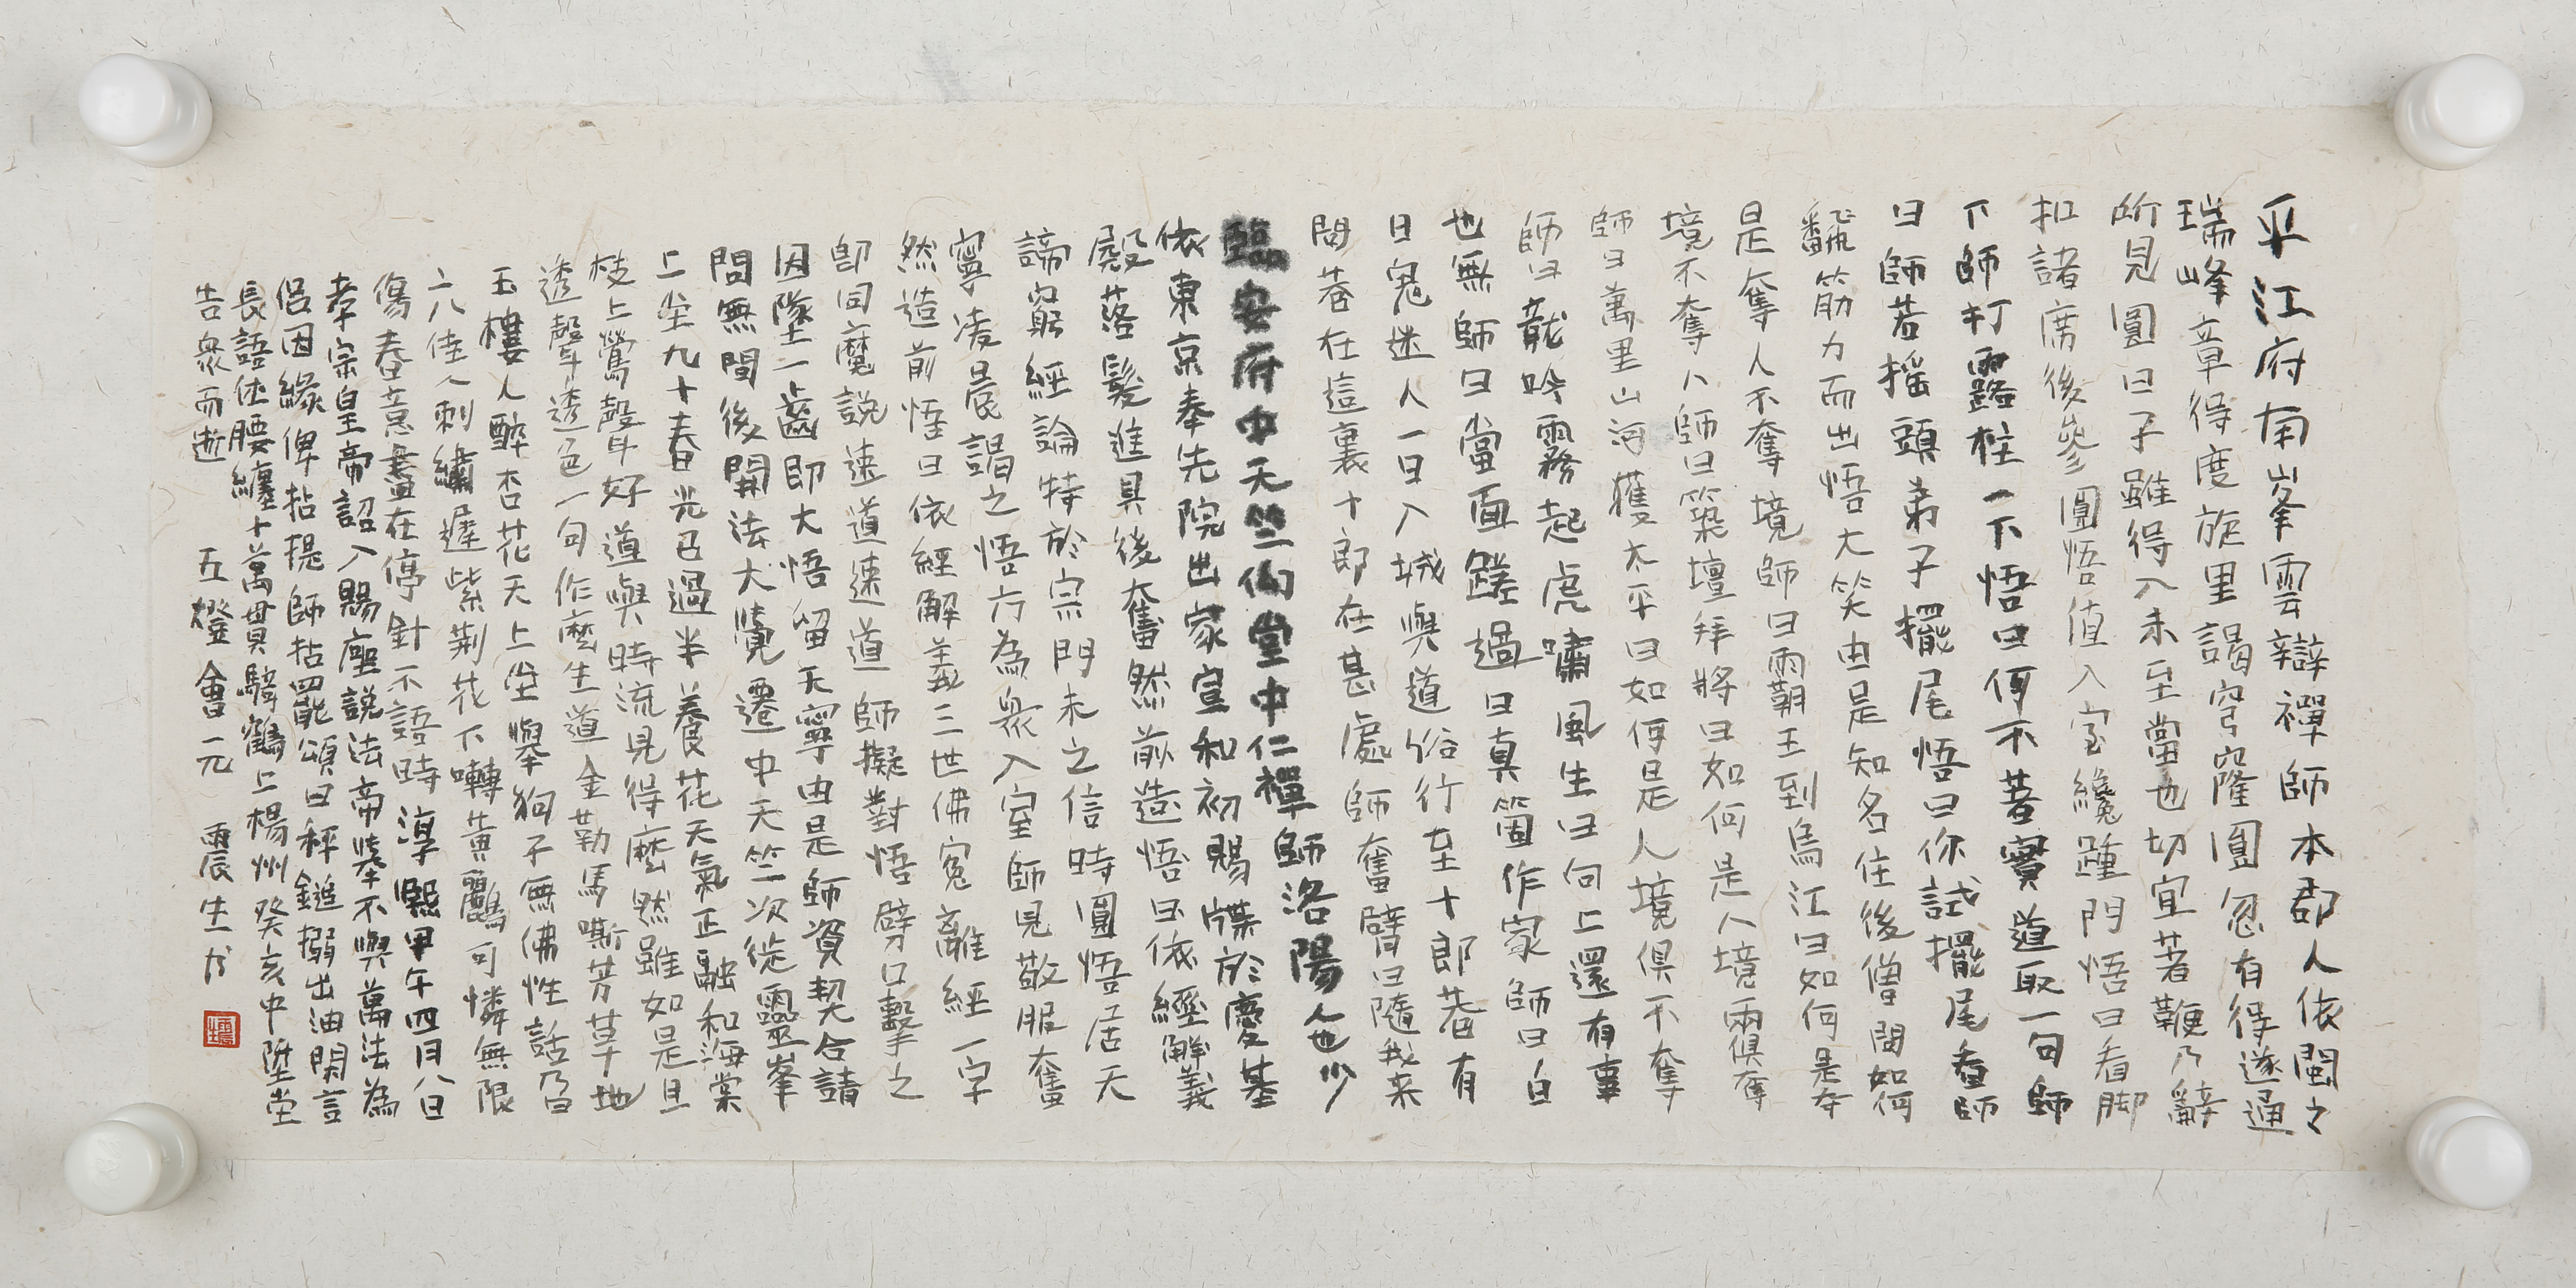 平江府南峯雲辯禪師本郡人依閩之
瑞峰章得度旋里謁穹窿圓忽有得遂通
所見圓曰子雖得入未至當也切宜著鞭乃辭
扣諸席後參圜悟值入室纔踵門悟曰看脚
下師打露柱一下悟曰何不著實道取一句師
曰師若搖頭弟子擺尾悟曰你試擺尾看師
翻筋力而出悟大笑由是知名住後僧問如何
是奪人不奪境師曰霸王到烏江曰如何是奪
境不奪人師曰築壇拜將曰如何是人境兩俱奪
師曰萬里山河獲太平曰如何是人境俱不奪
師曰龍吟霧起虎嘯風生曰向上還有事
也無師曰當面蹉過曰真箇作家師曰白
日鬼迷人一日入城與道俗行至十郎巷有
問巷在這裏十郎在甚處師奮臂曰隨我来
臨安府中天竺佝堂中仁禪師洛陽人也少
依東京奉先院出家宣和初賜牒於慶基
殿落髮進具後奮然前造悟曰依經解義
諦窮經論特於宗門未之信時圓悟居天
寧凌晨謁之悟方為衆入室師見敬服奮
然造前悟曰依經解義三世佛冤離經一字
即同魔說速道速道師擬對悟劈口擊之
因墜一齒即大悟留天寧由是師資契合請
問無間後開法大覺遷中天竺次徙靈峯
上坐九十春光已過半養花天氣正融和海棠
枝上鶯聲好道與時流見得麼然雖如是且
透聲透色一句作麼生道金勒馬嘶芳草地
玉樓人醉杏花天上坐舉狗子無佛性話乃曰
二八佳人刺繡遲紫荊花下囀黃鸝可憐無限
傷春意盡在停針不語時淳熙甲午四月八日
孝宗皇帝詔入賜座說法帝舉不與萬法為
侶因緣俾拈提師拈罷頌曰秤鎚搦出油閑言
長語休腰纏十萬貫騎鶴上楊州癸亥中陞堂
告衆而逝　五燈會元　震生书